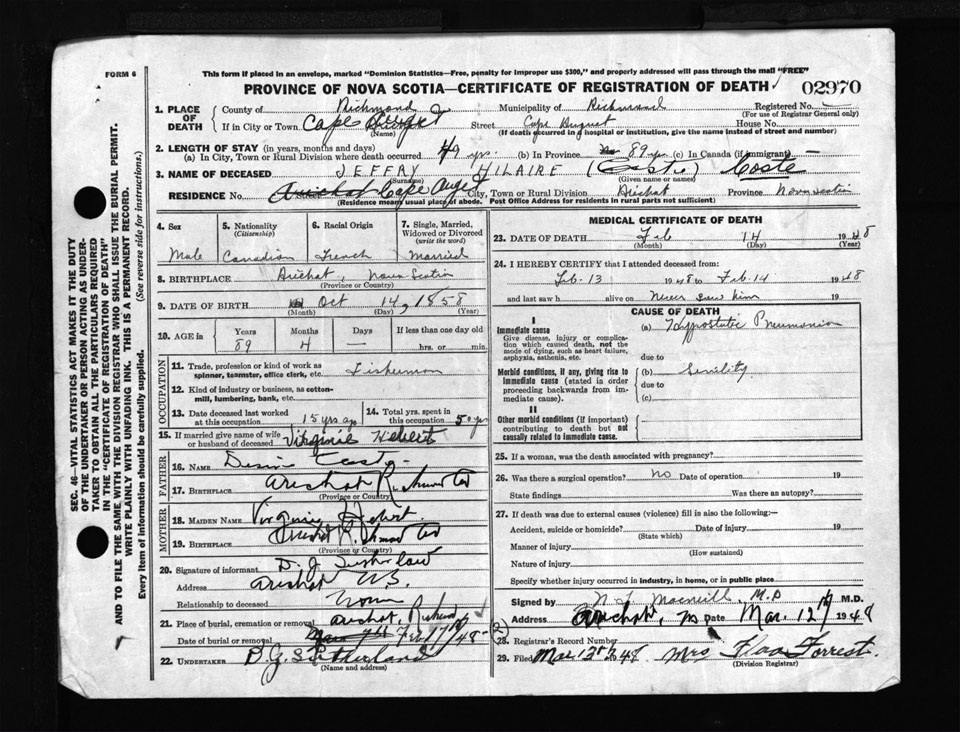 FORM 6
This form if placed in an envelope, marked "Dominion Statistics—Free, penalty for improper use $300," and properly addressed will pass through the mail "FREE"
PROVINCE OF NOVA SCOTIA—CERTIFICATE OF REGISTRATION OF DEATH
02970
1. PLACE OF DEATH
County of Richmond Municipality of Richmond Registered No.
(For use of Registrar General only)
If in City or Town Cape Auget Street Cape August House No.
(Name) (If death occurred in a hospital or institution, give the name instead of street and number)
2. LENGTH OF STAY (in years, months and days)
(a) In City, Town or Rural Division where death occurred 49 yrs. (b) In Province 89 yrs (c) In Canada (if immigrant)
3. NAME OF DECEASED JEFFRY HILAIRE (Castie) Coste
(Surname) (Given name or names)
RESIDENCE No. Arichat Cape Auget City, Town or Rural Division Arichat Province Nova Scotia
(Residence means usual place of abode. Post Office Address for residents in rural parts not sufficient)
4. Sex
5. Nationality (Citizenship)
6. Racial Origin
7. Single, Married, Widowed or Divorced (write the word)
Male Canadian French Married
8. BIRTHPLACE Arichat, Nova Scotia
(Province or Country)
9. DATE OF BIRTH Oct 14, 1858
(Month) (Day) (Year)
10. AGE in Years Months Days If less than one day old
89 4 — hrs. or min.
OCCUPATION
11. Trade, profession or kind of work as spinner, teamster, office clerk, etc. Fisherman
12. Kind of industry or business, as cotton-mill, lumbering, bank, etc.
13. Date deceased last worked at this occupation 15 yrs ago
14. Total yrs. spent in this occupation 50 yrs
15. If married give name of wife or husband of deceased Virginie Hebert
FATHER
16. NAME
17. BIRTHPLACE Arichat Richmond Co
(Province or Country)
MOTHER
18. MAIDEN NAME
19. BIRTHPLACE Arichat Richmond Co
(Province or Country)
20. Signature of informant D. J. Sutherland
Address Arichat N.S.
Relationship to deceased None
21. Place of burial, cremation or removal Arichat, Richmond
Date of burial or removal Feb 17/48
22. UNDERTAKER D. G. Sutherland
(Name and address)
MEDICAL CERTIFICATE OF DEATH
23. DATE OF DEATH Feb 14 1948
(Month) (Day) (Year)
24. I HEREBY CERTIFY that I attended deceased from:
Feb. 13 1948 to Feb. 14 1948
and last saw h alive on Never saw him 19
CAUSE OF DEATH
I
Immediate cause
Give disease, injury or complication which caused death, not the mode of dying, such as heart failure, asphyxia, asthenia, etc.
(a) Hypostatic Pneumonia
due to
Morbid conditions, if any, giving rise to immediate cause (stated in order proceeding backwards from immediate cause).
(b) Senility
due to
(c)
II
Other morbid conditions (if important) contributing to death but not causally related to immediate cause.
25. If a woman, was the death associated with pregnancy?
26. Was there a surgical operation? No Date of operation 19
State findings Was there an autopsy?
27. If death was due to external causes (violence) fill in also the following:—
Accident, suicide or homicide? Date of injury 19
(State which)
Manner of injury
(How sustained)
Nature of injury
Specify whether injury occurred in industry, in home, or in public place
Signed by Macneill, M.D M.D.
Address Arichat, NS Date Mar. 12th 1948
28. Registrar's Record Number
29. Filed Mar. 12th 1948 Mrs Flora Forrest
(Division Registrar)
SEC. 46—VITAL STATISTICS ACT MAKES IT THE DUTY OF THE UNDERTAKER OR PERSON ACTING AS UNDERTAKER TO OBTAIN ALL THE PARTICULARS REQUIRED IN THE "CERTIFICATE OF REGISTRATION OF DEATH" AND TO FILE THE SAME WITH THE DIVISION REGISTRAR WHO SHALL ISSUE THE BURIAL PERMIT.
WRITE PLAINLY WITH UNFADING INK. THIS IS A PERMANENT RECORD.
Every item of information should be carefully supplied. (See reverse side for instructions.)